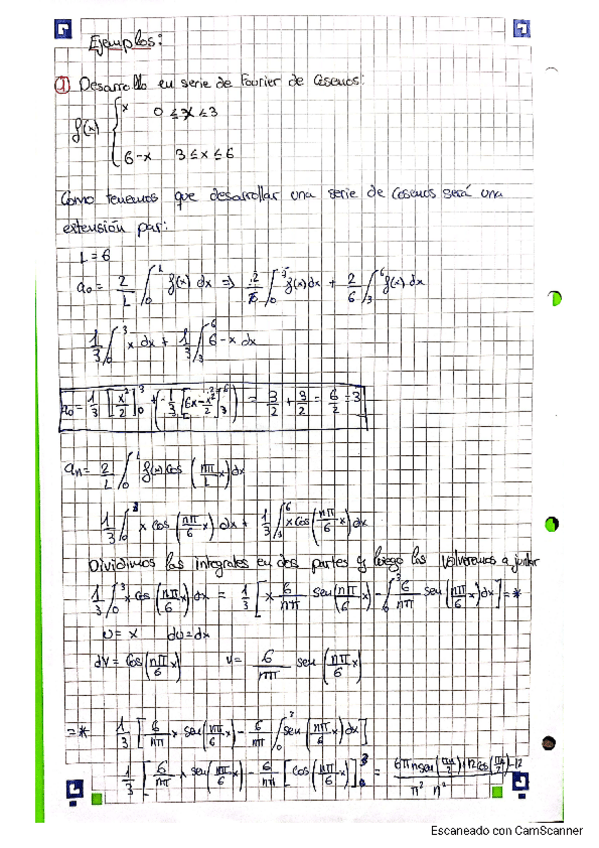 Ejemplos:
① Desarrollo en serie de Fourier de Cosenos:
f(x) { x 0 ≤ x ≤ 3
6-x 3 ≤ x ≤ 6
Como tenemos que desarrollar una serie de Cosenos será una
extensión par:
L = 6
a₀ = 2/L ∫₀ᴸ f(x) dx ⇒ 2/6 ∫₀³ f(x) dx + 2/6 ∫₃⁶ f(x) dx
1/3 ∫₀³ x dx + 1/3 ∫₃⁶ 6-x dx
a₀ = 1/3 [x²/2]₀³ + (-1/3 [6x - x²/2]₃⁶) = 3/2 + 3/2 = 6/2 = 3
aₙ = 2/L ∫₀ᴸ f(x) cos (nπ/L x) dx
1/3 ∫₀³ x cos (nπ/6 x) dx + 1/3 ∫₃⁶ x cos (nπ/6 x) dx
Dividimos las integrales en dos partes y luego las volveremos a juntar
1/3 ∫₀³ x cos (nπ/6 x) dx = 1/3 [x 6/nπ sen (nπ/6 x) - ∫₀³ 6/nπ sen (nπ/6 x) dx] = *
u = x du = dx
dv = cos (nπ/6 x) v = 6/nπ sen (nπ/6 x)
= * 1/3 [6/nπ x sen (nπ/6 x) - 6/nπ ∫₀³ sen (nπ/6 x) dx]
1/3 [6/nπ x sen (nπ/6 x) - 6/nπ [cos (nπ/6 x)]₀³ = (6πn sen (πn/2) + 12 cos (πn/2) - 12)/(π² n²)
Escaneado con CamScanner